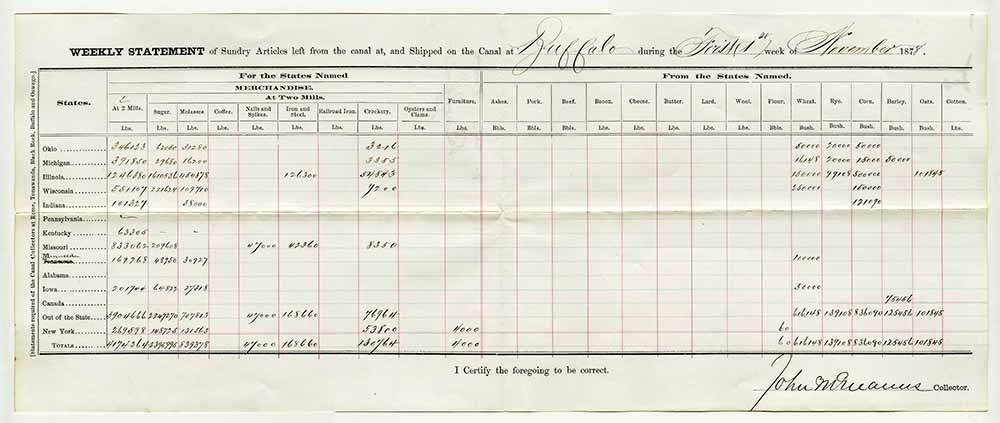 WEEKLY STATEMENT of Sundry Articles left from the canal at, and Shipped on the Canal at Buffalo during the First week of November 1878.
[Statements required of the Canal Collectors at Rome, Tonawanda, Black Rock, Buffalo and Oswego.]
For the States Named From the States Named.
MERCHANDISE.
At Two Mills.
States. At 2 Mills. Sugar. Molasses Coffee. Nails and Spikes. Iron and Steel. Railroad Iron. Crockery. Oysters and Clams. Furniture. Ashes. Pork. Beef. Bacon. Cheese. Butter. Lard. Wool. Flour. Wheat. Rye. Corn. Barley. Oats. Cotton.
Lbs. Lbs. Lbs. Lbs. Lbs. Lbs. Lbs. Lbs. Lbs. Lbs. Bbls. Bbls. Bbls. Lbs. Lbs. Lbs. Lbs. Lbs. Bbls. Bush. Bush. Bush. Bush. Bush. Lbs.
Ohio 346123 31280 3216 50000 20000 50000
Michigan 391850 29680 16200 3355 16148 20000 15000 50000
Illinois 1246380 1610536 450378 126300 54843 150000 99108 500000 101845
Wisconsin 551107 221624 109700 7200 250000 150000
Indiana 101327 38000 121090
Pennsylvania
Kentucky 63305 - -
Missouri 833062 209608 47000 42360 8350
169768 48950 30927 100000
Alabama
Iowa 201744 64822 27318 50000
Canada 75456
Out of the State 3904666 2247270 707813 47000 168660 76964 616148 139108 836090 125456 101845
New York 269598 148725 131563 53800 4000 60
TOTALS 4174264 2395995 839378 47000 168660 130764 4000 60 616148 139108 836090 125456 101845
I Certify the foregoing to be correct.
John McManus Collector.